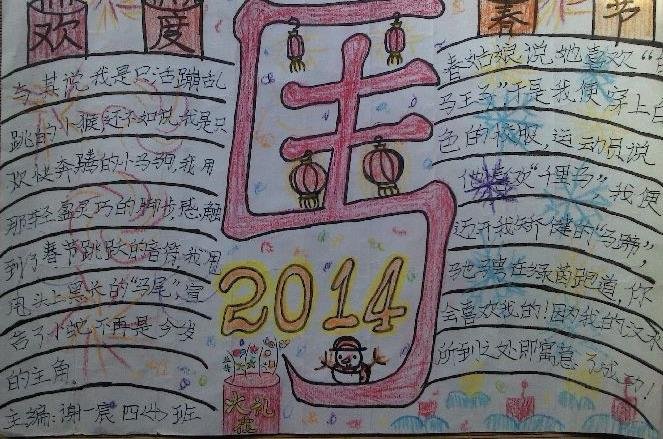 欢度春节
与其说我是只活蹦乱
跳的小猴,还不如说我是只
欢快奔腾的小马驹,我用
那轻盈灵巧的脚步感触
到了春节跳跃的音符,我用
甩头上黑长的“马尾”,宣
告了小蛇不再是今岁
的主角。
主编:谢一宸 四
班
马
2014
大礼
春姑娘说,她喜欢“白
马王子”于是我便穿上白
色的校服,运动员说
他喜欢“千里马”,我便
迈开我矫健的“马蹄”
驰骋在绿茵跑道,你
会喜欢我的!因为我的
所到之处即寓意了成功!